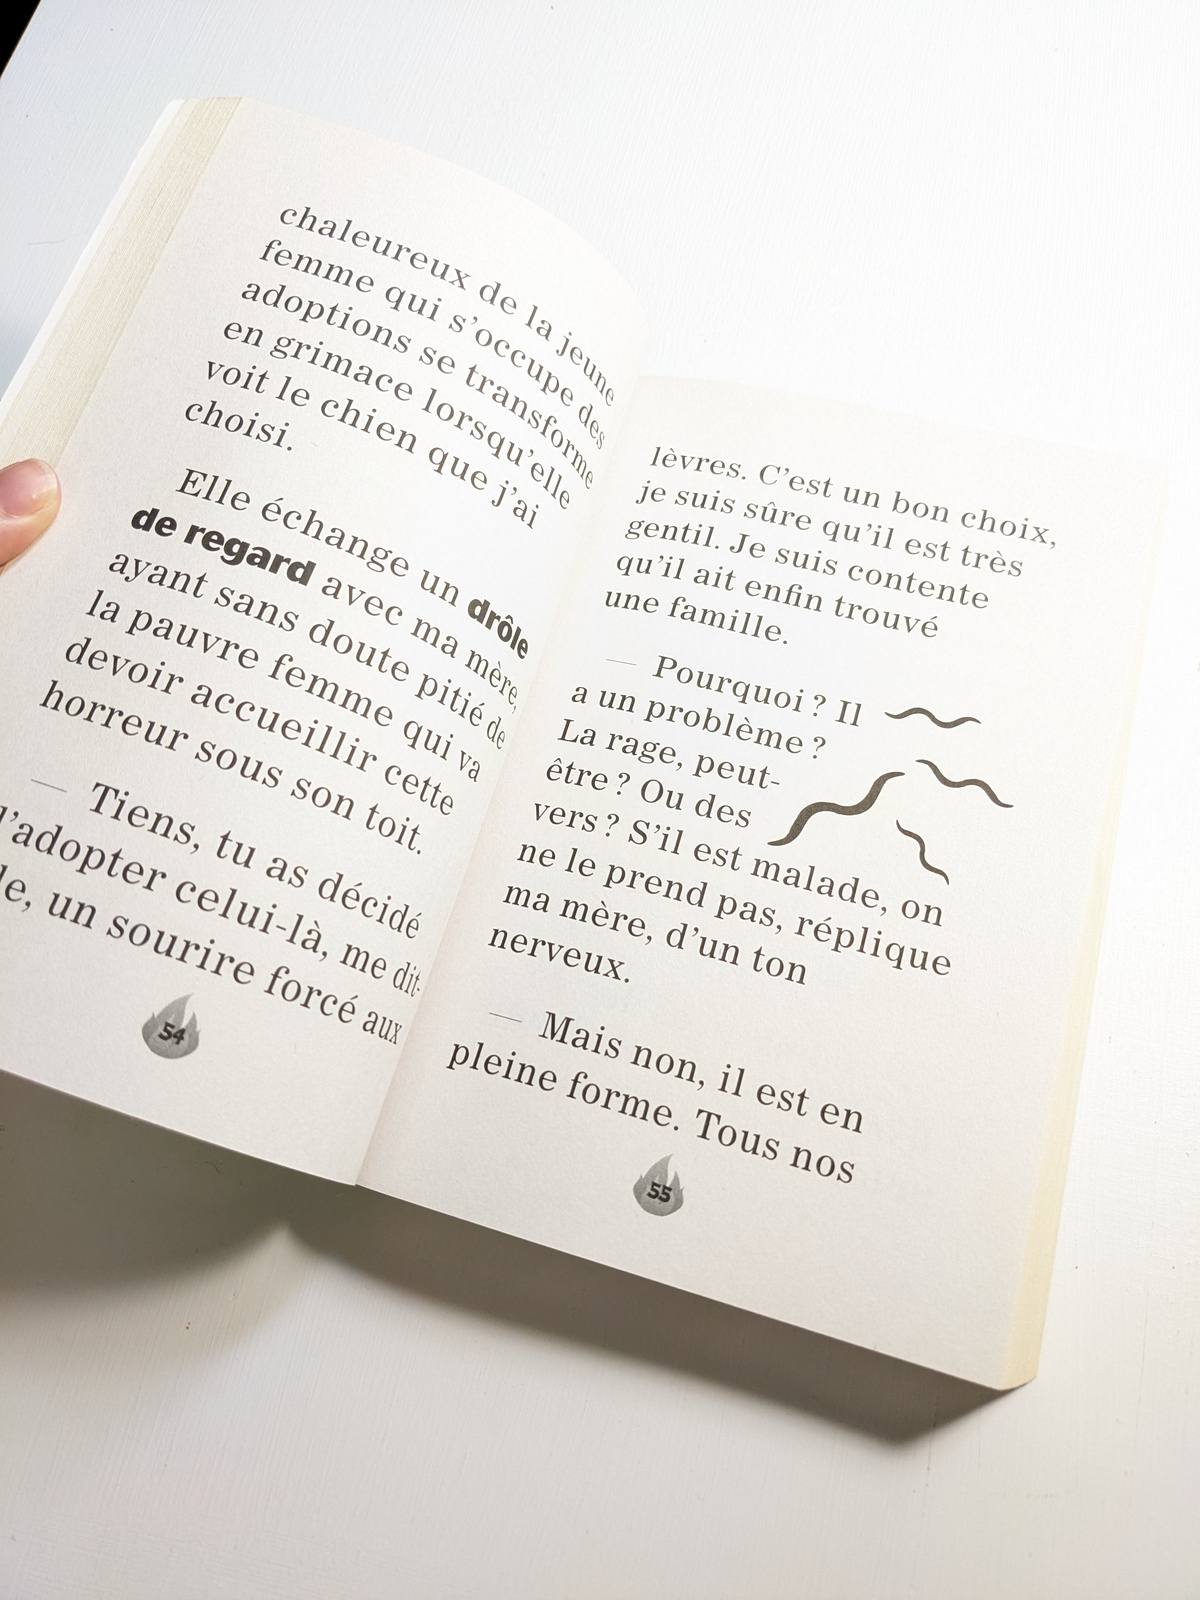 chaleureux de la jeune
femme qui s'occupe des
adoptions se transforme
en grimace lorsqu'elle
voit le chien que j'ai
choisi.
Elle échange un drôle
de regard avec ma mère,
ayant sans doute pitié de
la pauvre femme qui va
devoir accueillir cette
horreur sous son toit.
— Tiens, tu as décidé
d'adopter celui-là, me dit-
elle, un sourire forcé aux
54
lèvres. C'est un bon choix,
je suis sûre qu'il est très
gentil. Je suis contente
qu'il ait enfin trouvé
une famille.
— Pourquoi ? Il
a un problème ?
La rage, peut-
être ? Ou des
vers ? S'il est malade, on
ne le prend pas, réplique
ma mère, d'un ton
nerveux.
— Mais non, il est en
pleine forme. Tous nos
55